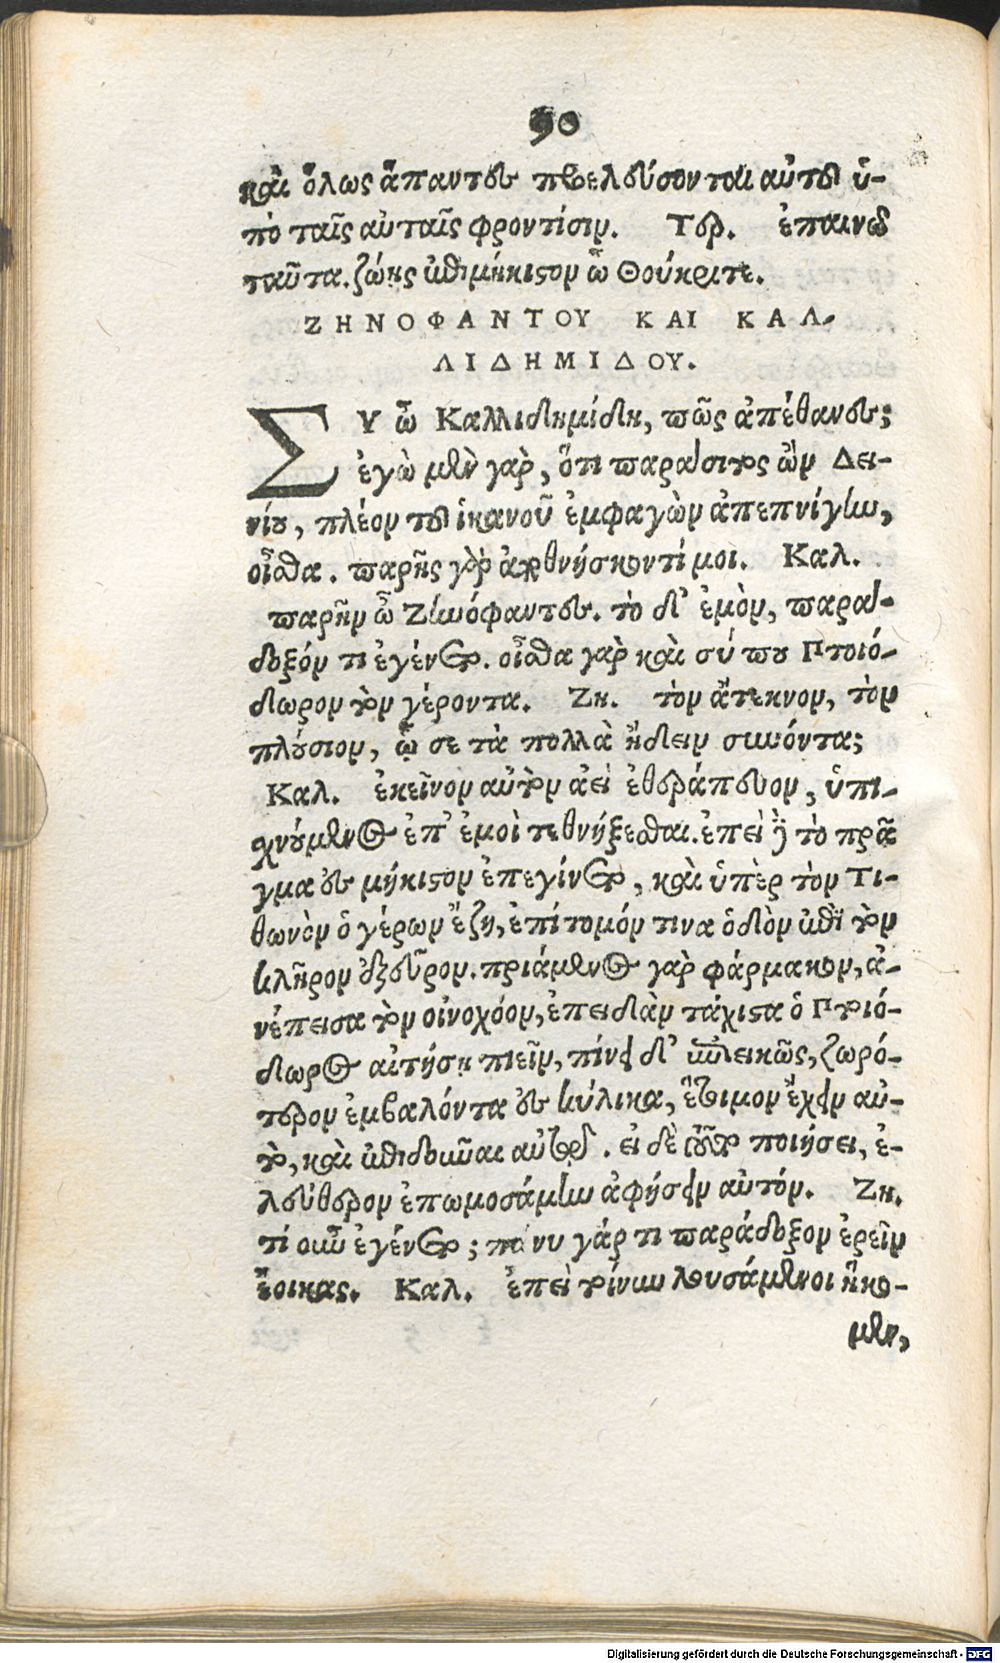 90
καὶ ὅλως ἅπαντες προελεύσονται αὐτοῦ ὑ-
πὸ ταῖς αὐταῖς φροντίσιν. Τερ. ἐπαινῶ
ταῦτα. ζώης ἐπιμήκιστον ὦ Θούκριτε.
ΖΗΝΟΦΑΝΤΟΥ ΚΑΙ ΚΑΛ-
ΛΙΔΗΜΙΔΟΥ.
ΣΥ ὦ Καλλιδημίδη, πῶς ἀπέθανες;
ἐγὼ μὲν γὰρ, ὅτι παράσιτος ὢν Δει-
νίου, πλέον τοῦ ἱκανοῦ ἐμφαγὼν ἀπεπνίγην,
οἶσθα. παρῆς γὰρ ἀποθνήσκοντί μοι. Καλ.
παρῆν ὦ Ζηνόφαντες. τὸ δ' ἐμὸν, παρά-
δοξόν τι ἐγένετο. οἶσθα γὰρ καὶ σύ που Πτοιό-
δωρον τὸν γέροντα. Ζη. τὸν ἄτεκνον, τὸν
πλούσιον, ᾧ σε τὰ πολλὰ ᾔδειν συνόντα;
Καλ. ἐκεῖνον αὐτὸν ἀεὶ ἐθεράπευον, ὑπι-
χνούμενος ἐπ' ἐμοὶ τεθνήξεσθαι. ἐπεὶ δὲ τὸ πρᾶ
γμα ἐς μήκιστον ἐπεγίνετο, καὶ ὑπὲρ τὸν Τι-
θωνὸν ὁ γέρων ἔζη, ἐπίτομόν τινα ὁδὸν ἐπὶ τὸν
κλῆρον ἐξεῦρον. πριάμενος γὰρ φάρμακον, ἀ-
νέπεισα τὸν οἰνοχόον, ἐπειδὰν τάχιστα ὁ Πτοιό-
δωρος αἰτήσῃ πιεῖν, πίνει δ' ἐπιεικῶς, ζωρό-
τερον ἐμβαλόντα ἐς κύλικα, ἕτοιμον ἔχειν αὐ-
τὸ, καὶ ἐπιδοῦναι αὐτῷ. εἰ δὲ τοῦτο ποιήσει, ἐ-
λεύθερον ἐπωμοσάμην ἀφήσειν αὐτόν. Ζη.
τί οὖν ἐγένετο; πάνυ γάρ τι παράδοξον ἐρεῖν
ἔοικας. Καλ. ἐπεὶ τοίνυν λουσάμενοι ἥκο-
μεν,
Digitalisierung gefördert durch die Deutsche Forschungsgemeinschaft - DFG